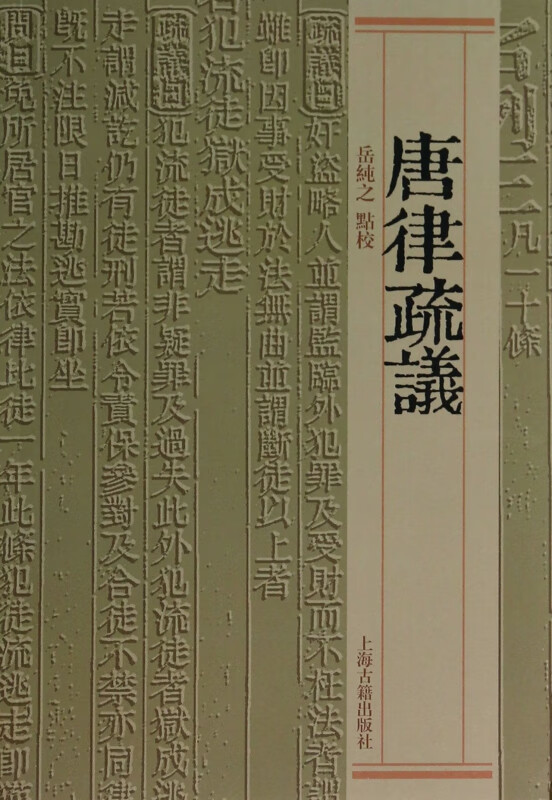 名例三 凡一十條
唐律疏議
岳純之 點校
上海古籍出版社
疏議曰奸盜略人並謂監臨外犯罪及受財而不枉法者謂
雖即因事受財於法無曲並謂斷徒以上者
若犯流徒獄成逃走
疏議曰犯流徒者謂非疑罪及過失此外犯流徒者獄成逃
走謂減訖仍有徒刑若依令責保參對及合徒不禁亦同律
既不注限日推勘逃實即坐
問曰免所居官之法依律比徒一年此條犯徒流逃走即